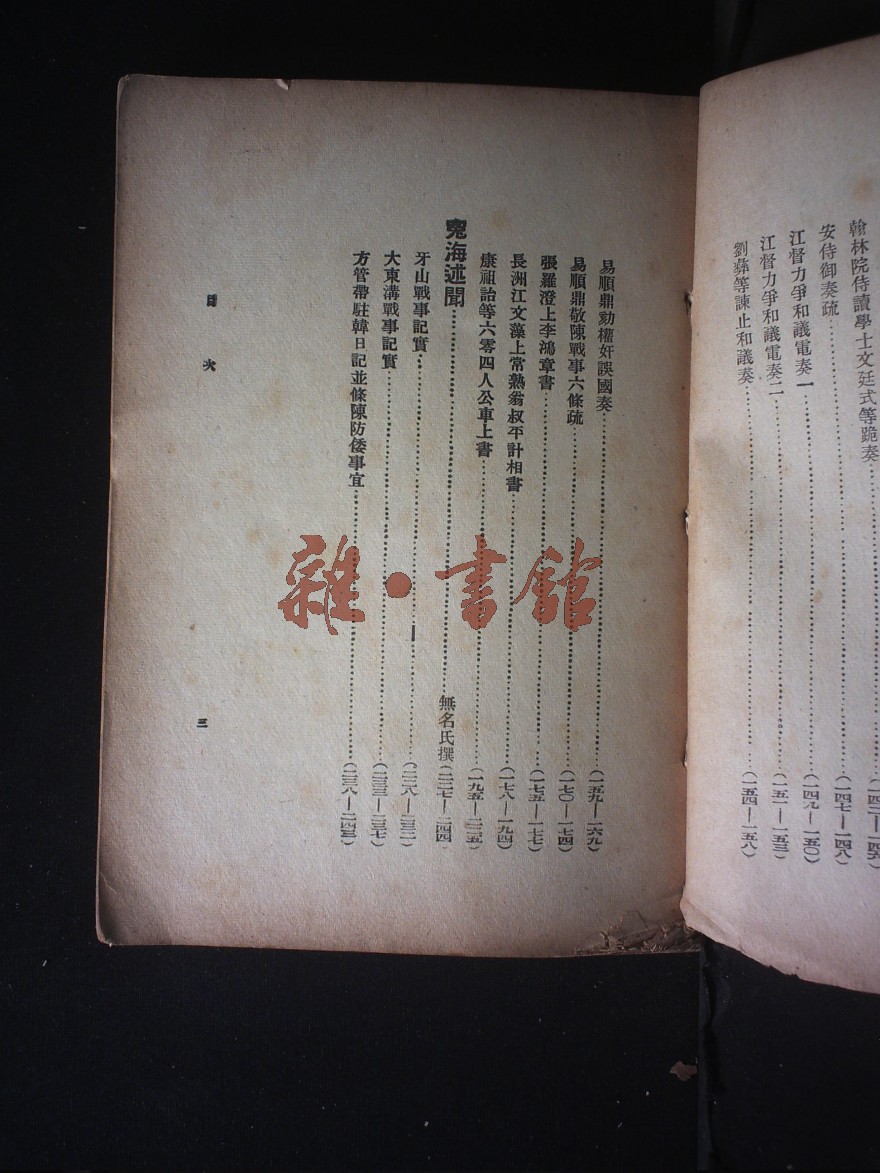 翰林院侍讀學士文廷式等跪奏
安侍御奏疏……(一四七—一四八)
江督力爭和議電奏一……(一四九—一五〇)
江督力爭和議電奏二……(一五一—一五三)
劉彝等諫止和議奏……(一五四—一五八)
易順鼎劾權奸誤國奏……(一五九—一六九)
易順鼎敬陳戰事六條疏……(一七〇—一七四)
張羅澄上李鴻章書……(一七五—一七七)
長洲江文藻上常熟翁叔平計相書……(一七八—一九四)
康祖詒等六零四人公車上書……(一九五—二二五)
寃海述聞……無名氏撰(二二七—二四四)
牙山戰事記實……(二二八—二三二)
大東溝戰事記實……(二三三—二三七)
方管帶駐韓日記並條陳防倭事宜……(二三八—二四三)
目次
三
雜·書館